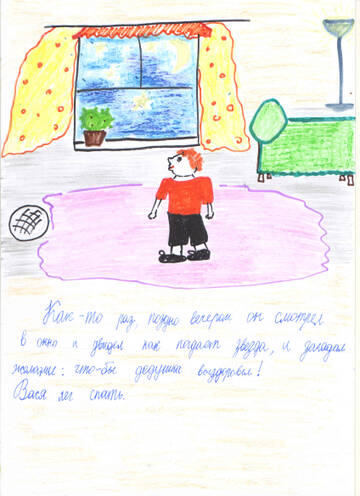 Как-то раз, поздно вечером он смотрел
в окно и увидел как падает звезда, и загадал
желание: что-бы дедушка выздоровел!
Вася лег спать.